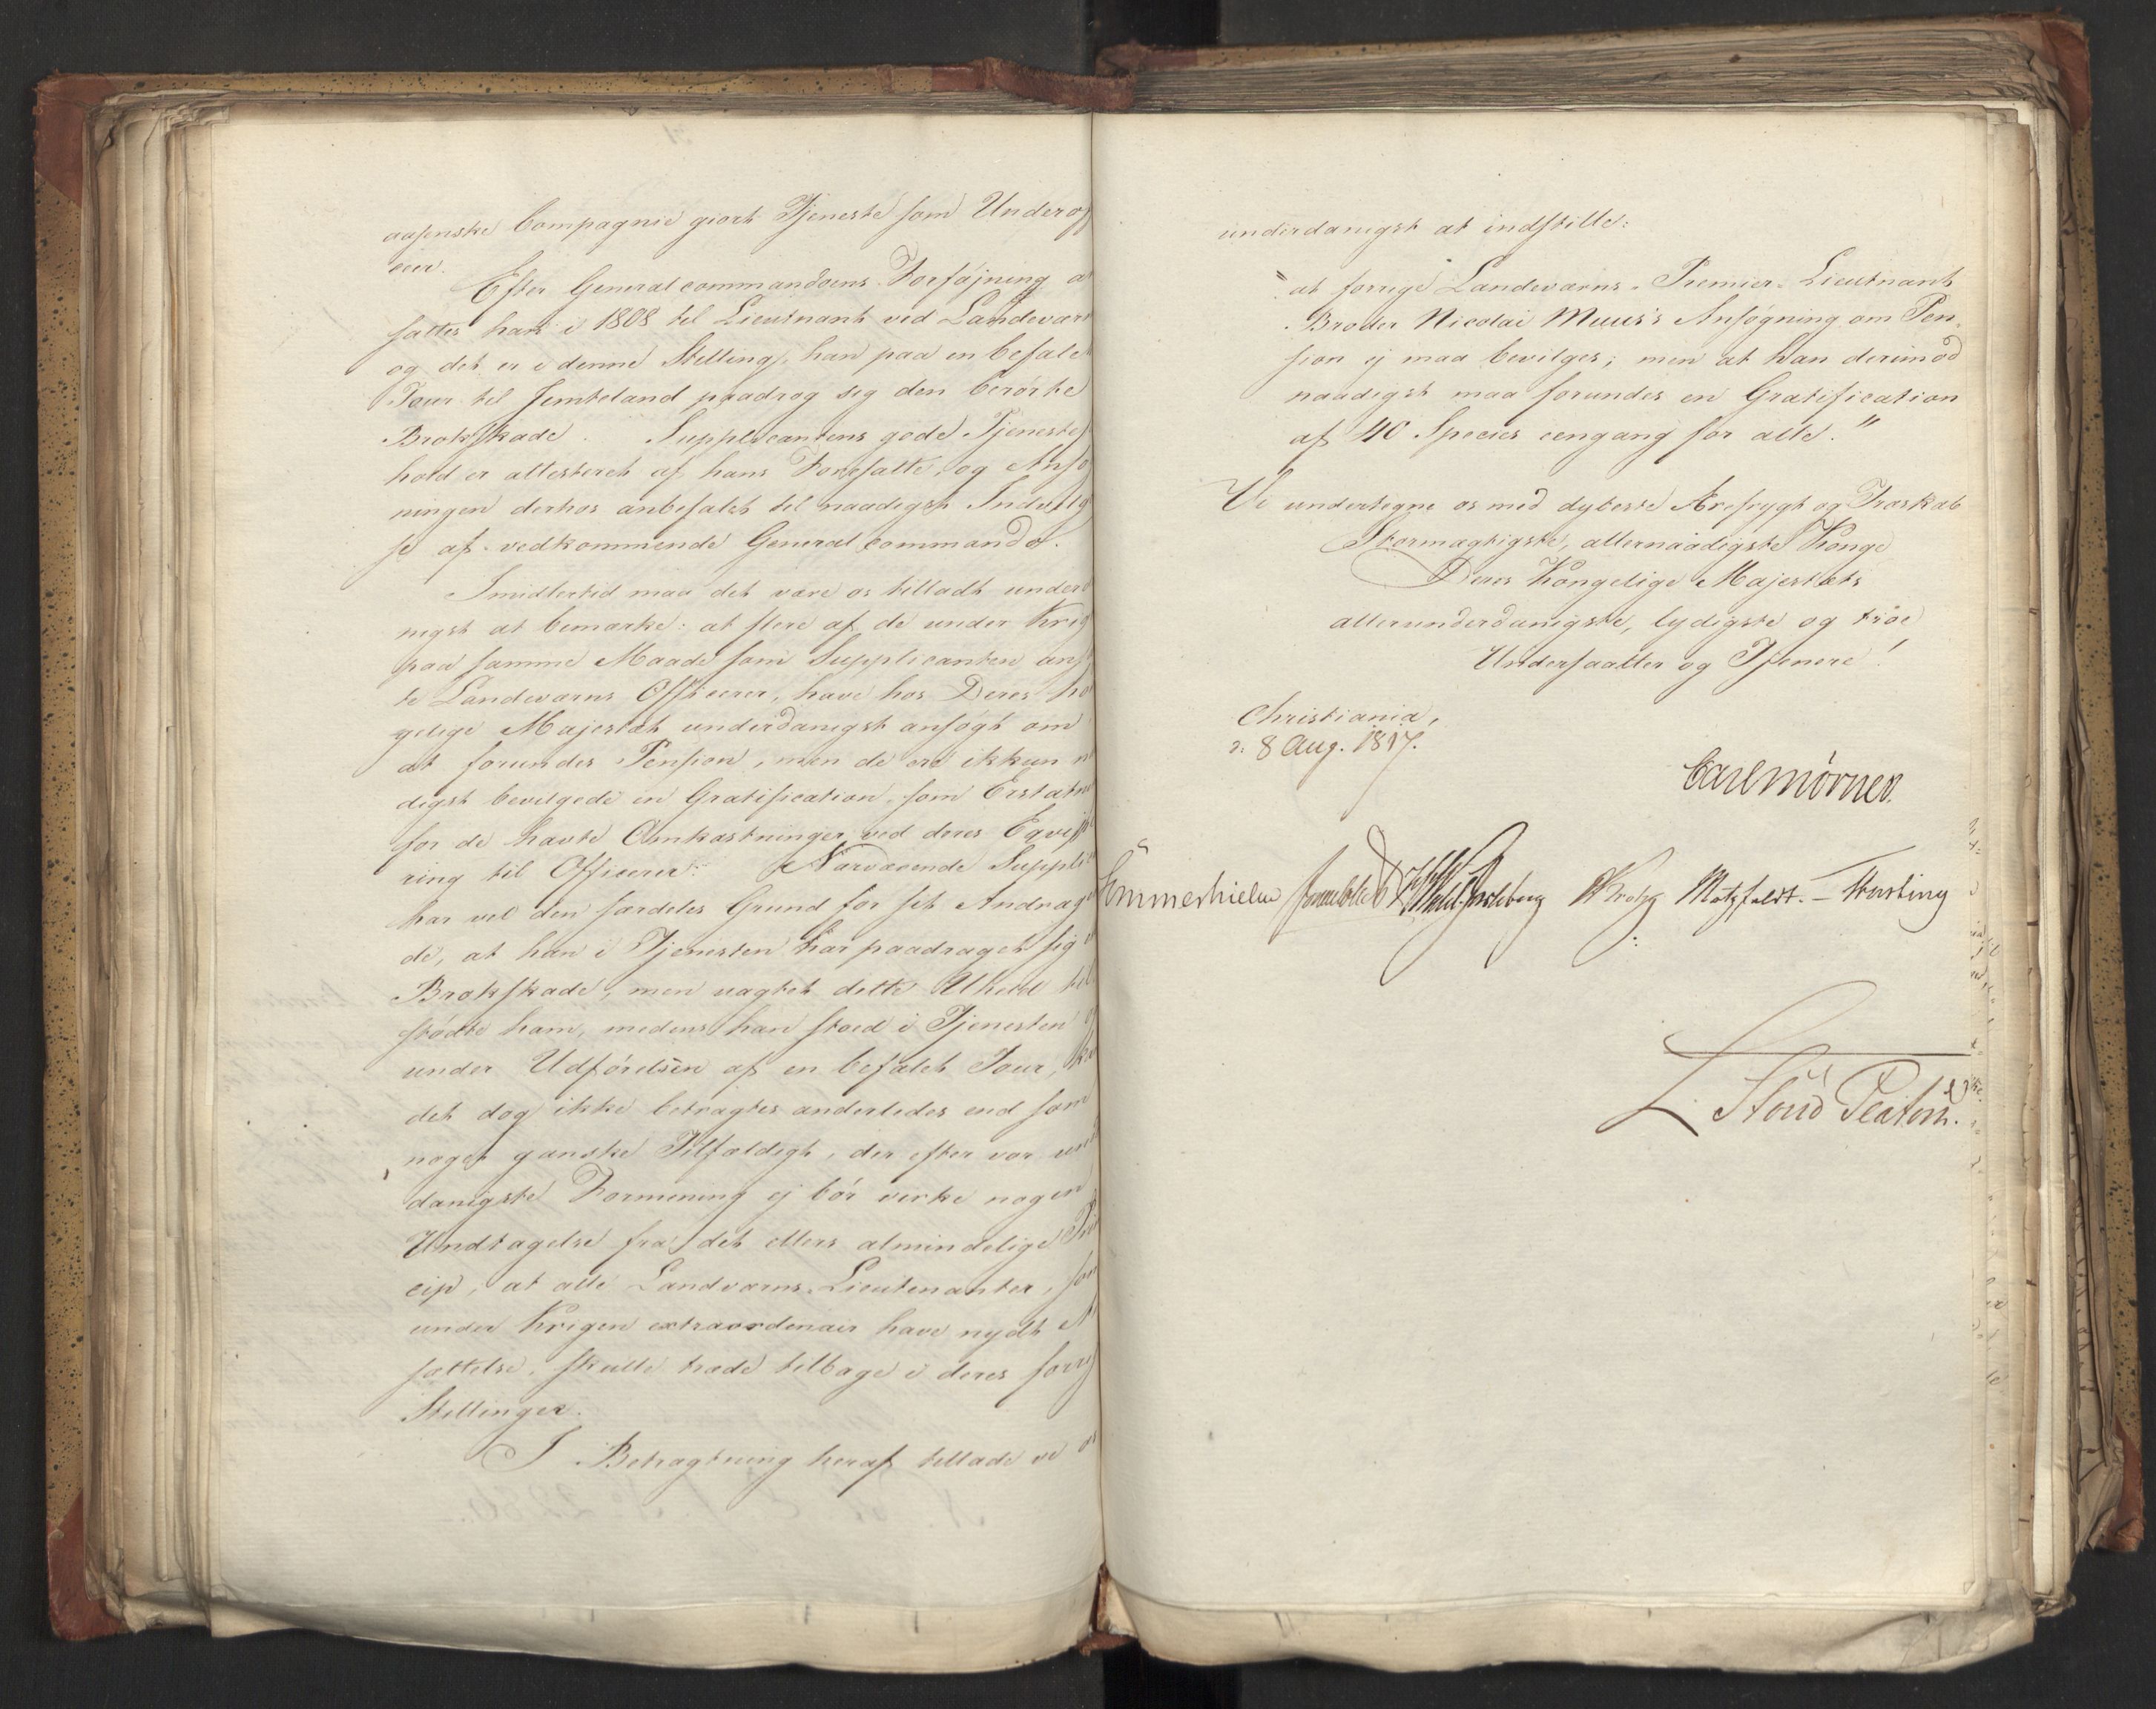 aasenske Compagnie giort Tjeneste som Underof
ceer.
Efter Generalcommandoens Forføjning a
sattes han i 1808 til Lieutnant ved Landevær
og det er i denne Stilling, han paa en befalet
Tour til Jemteland paadrog sig den berørte
Brokskade. Supplicantens gode Tjenestes
hold er attesteret af hans Foresatte, og Ansø
ningen derhos anbefalet til naadigst Indvilg
se af vedkommende General commando.
Imidlertid maa det være os tilladt under
nigst at bemærke: at flere af de under Krig
paa samme Maade som Supplicanten ans
te Landeværns Officerer, have hos Deres ko
gelige Majestæt underdanigst ansøgt om
at forundes Pension, men de ere ikkun n
digst bevilgede en Gratification, som Erstatn
for de havte Omkostninger ved deres Eqvip
ring til Officerer. Nærværende Suppli
har vel den særdeles Grund for sit Andrag
de, at han i Tjenesten har paadraget sig
Brokskade, men uagtet dette Uheld til
stødte ham, medens han stoed i Tjenesten
under Udførelsen af en befalet Tour, k
det dog ikke betragtes anderledes end som
noget ganske Tilfældigt, der efter vor und
danigste Formening ej bør virke nogen
Undtagelse fra det ellers almindelige Prin
cip, at alle Landværns-Lieutenanter, som
under Krigen extraordenair have nydt A
sættelse, skulle træde tilbage i deres forrs
Stillinger.
I Betragtning heraf tillade vi os
underdanigst at indstille:
"at forrige Landeværns-Premier-Lieutnant
Broder Nicolai Muus's Ansøgning om Pen-
sion ej maa bevilges; men at han derimod
naadigst maa forundes en Gratification
af 40 Species eengang for alle."
Vi undertegne os med dybeste Ærefrygt og Troskab
Stormægtigste, allernaadigste Konge
Deres Kongelige Majestæts
allerunderdanigste, lydigste og troe
Undersaatter og Tjenere!
Christiania,
d: 8 Aug. 1817.
Carl Mörner.
Sommerhielm Krohg Motzfeldt. - Fasting
L. Stoud Platou.